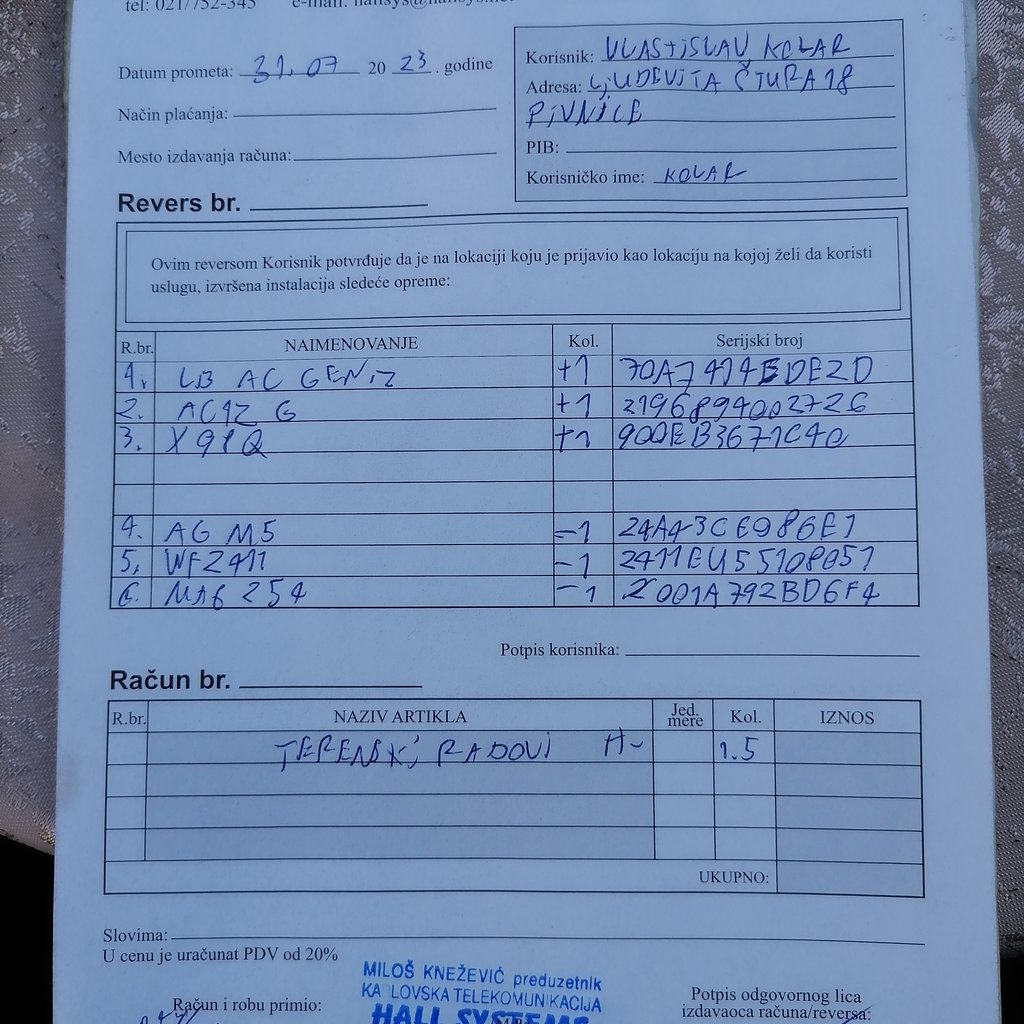 tel: 021/752-345 e-mail: hallsys@hallsys.net
Datum prometa: 31.07 2023. godine
Način plaćanja:
Mesto izdavanja računa:
Korisnik: VLASTISLAV KOLAR
Adresa: LJUDEVITA ČTURA 18
PIVNICE
PIB:
Korisničko ime: KOLAR
Revers br.
Ovim reversom Korisnik potvrđuje da je na lokaciji koju je prijavio kao lokaciju na kojoj želi da koristi
uslugu, izvršena instalacija sledeće opreme:
R.br. NAIMENOVANJE Kol. Serijski broj
1. LB AC GEN2 +1 70A7414BDE2D
2. AC12 G +1 2196894002726
3. X98Q +1 900EB3671C40
4. AG M5 -1 24A43CE986E1
5. WF2411 -1 2411EU55108051
6. MAG 254 -1 001A792BD6F4
Potpis korisnika:
Račun br.
R.br. NAZIV ARTIKLA Jed. mere Kol. IZNOS
TERENSKI RADOVI H~ 1.5
UKUPNO:
Slovima:
U cenu je uračunat PDV od 20%
MILOŠ KNEŽEVIĆ preduzetnik
KA LOVSKA TELEKOMUNIKACIJA
HALL SYSTEMS
Račun i robu primio:
Potpis odgovornog lica
izdavaoca računa/reversa: